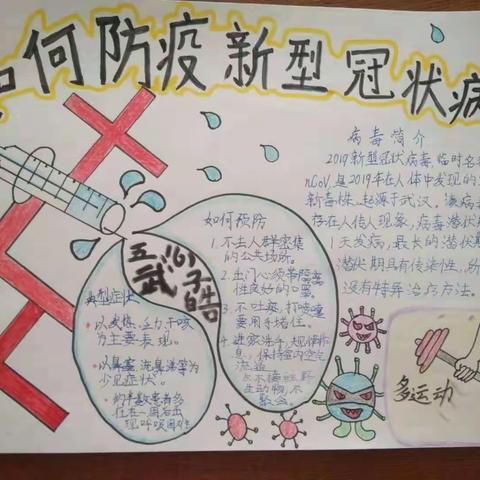 如何防疫新型冠状病
病毒简介
2019新型冠状病毒,临时名
nCoV,是2019年在人体中发现的
新毒株。起源于武汉,
存在人传人现象,病毒潜伏
天发病,最长的潜伏期
潜伏期具有传染性,
没有特异治疗方法。
如何预防
1.不去人群密集
的公共场所。
2.出门必须带隔离
性良好的口罩。
3.不吐痰,打喷嚏
要用手堵住。
4.进家洗手,规律作
息,保持室内空气
流通
生动物,不
聚会
典型症状
·以发热,乏力,干咳
为主要表现。
·以鼻塞,流鼻涕等为
少见症状。
·约半数患者多
在一周后出
现呼吸困难
多运动